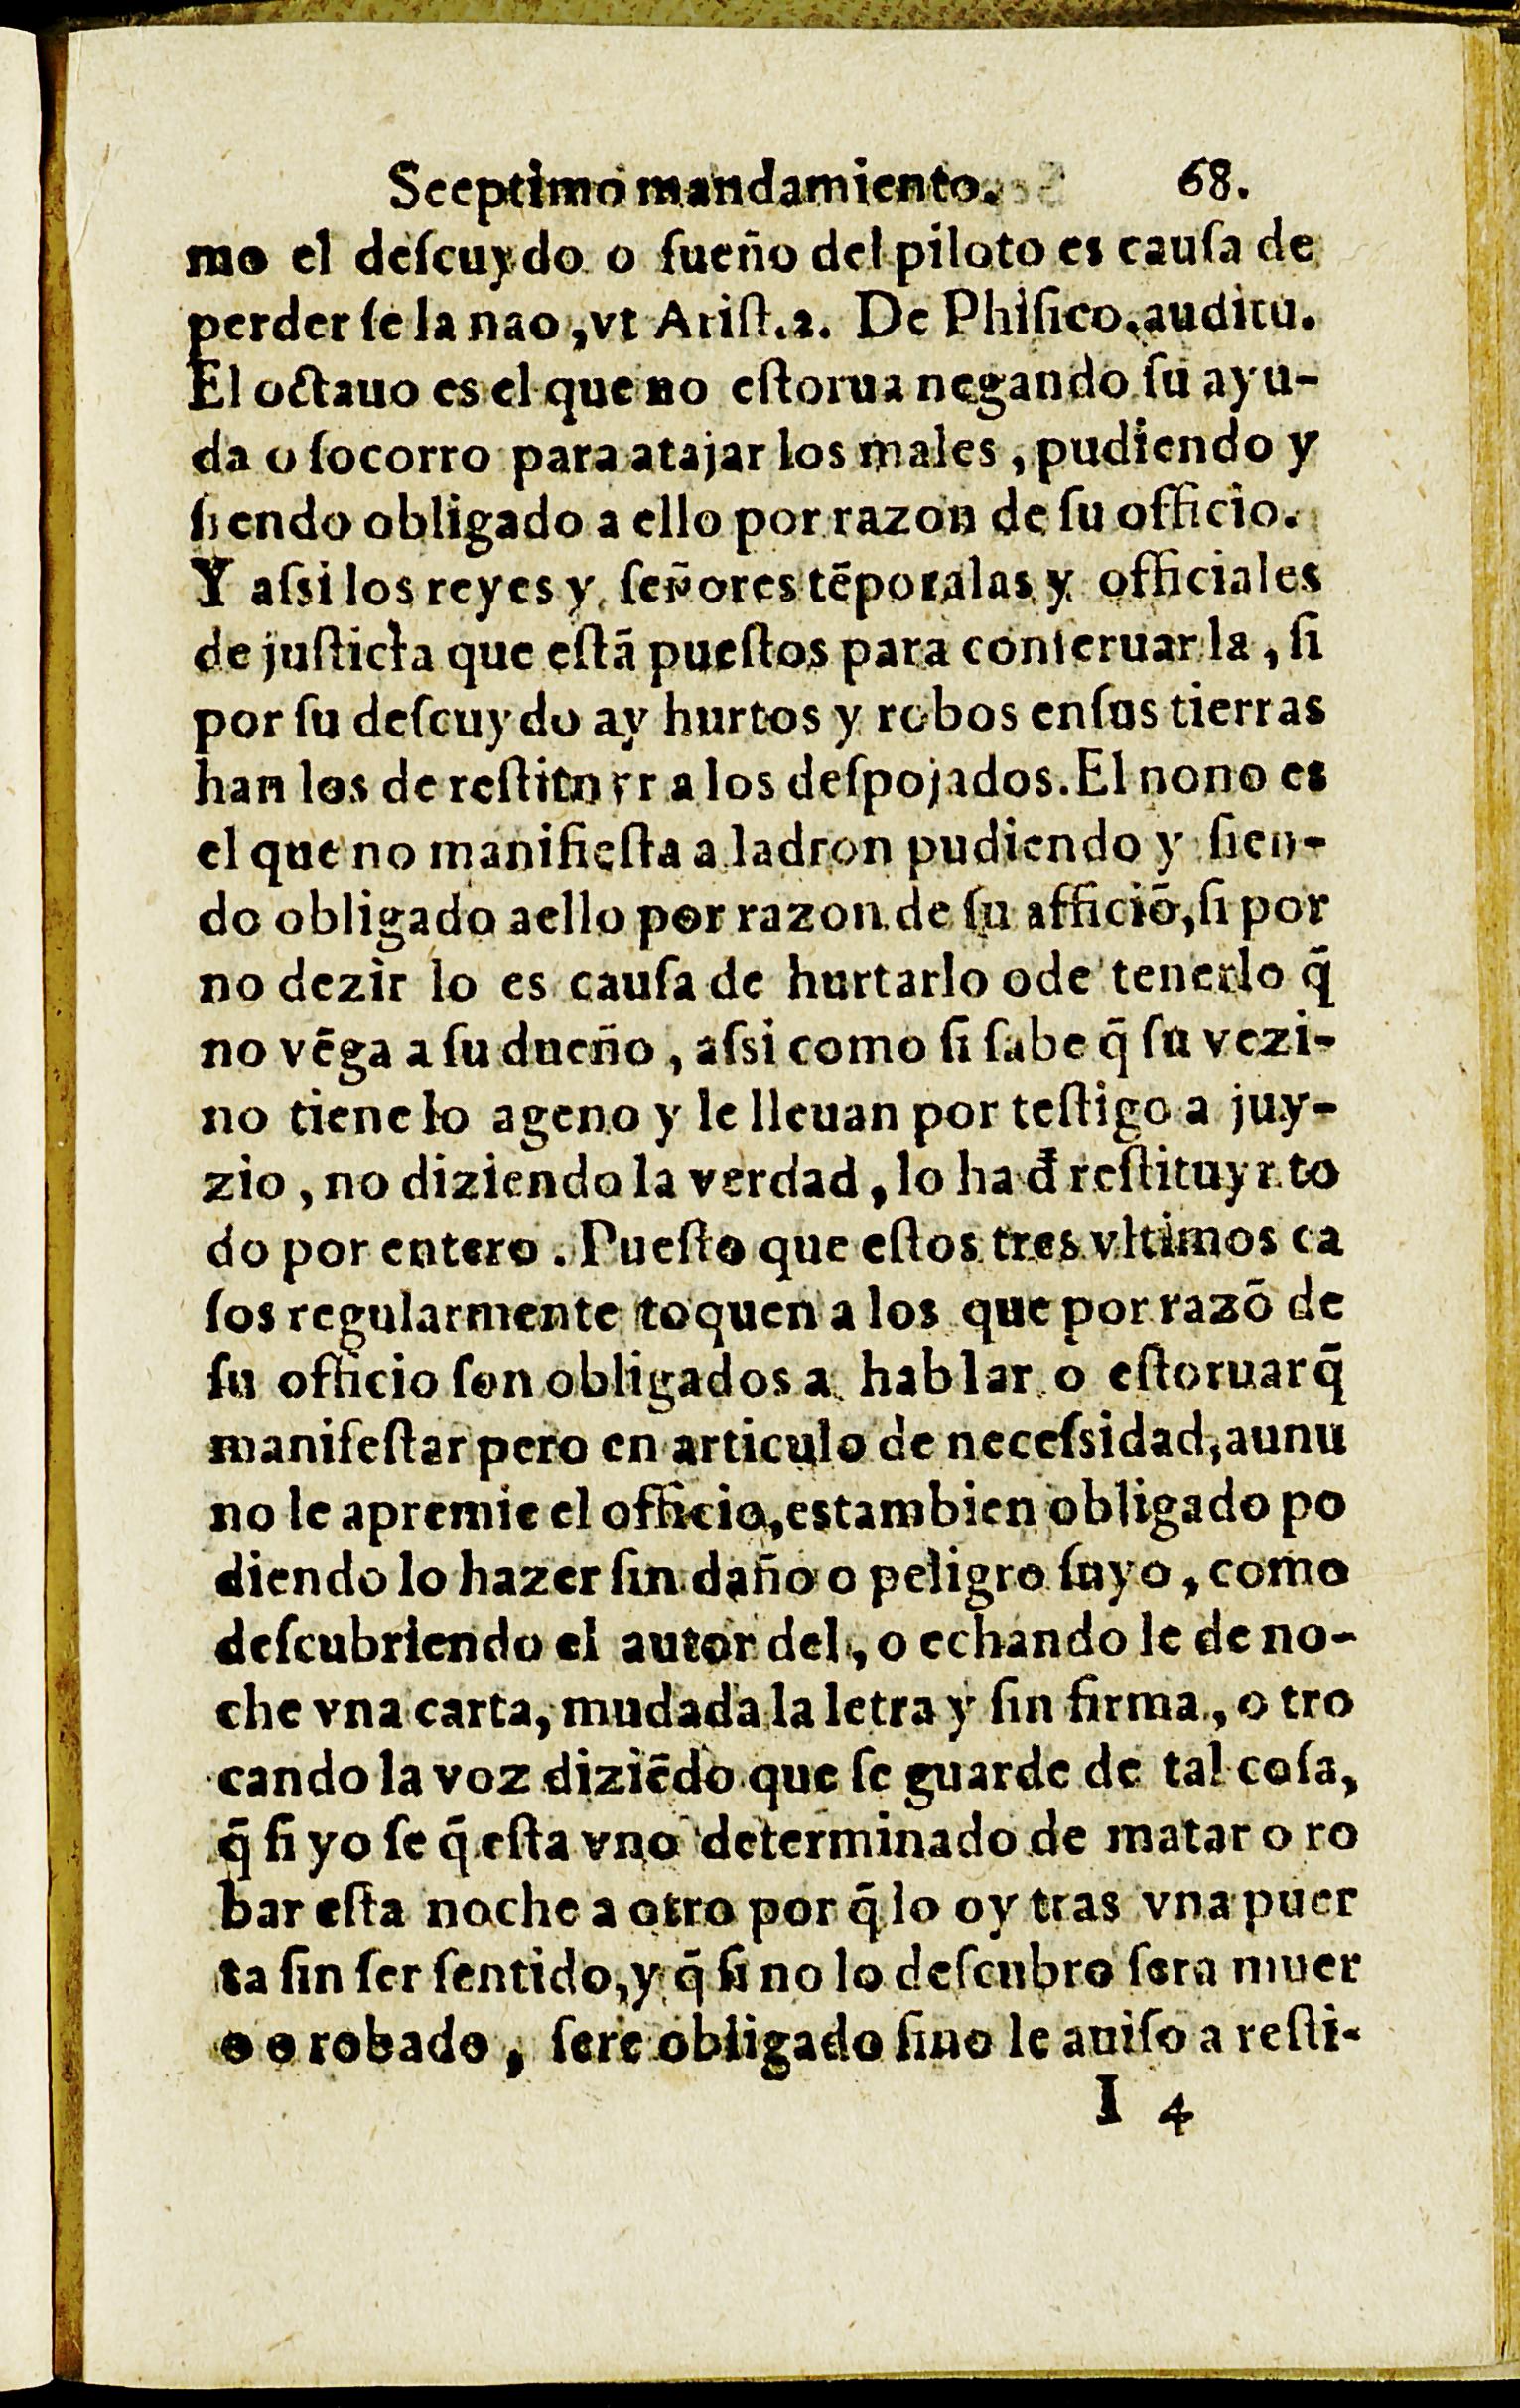 Sceptimo mandamiento. 68.
mo el deſcuydo o ſueño del piloto es cauſa de
perder ſe la nao, vt Ariſt. 2. De Phiſico. auditu.
El octauo es el que no eſtorua negando ſu ayu-
da o ſocorro para atajar los males, pudiendo y
ſiendo obligado a ello por razon de ſu officio.
Y aſsi los reyes y ſeñores tẽporalas y officiales
de juſticia que eſtã pueſtos para conſeruar la, ſi
por ſu deſcuydo ay hurtos y robos enſus tierras
han los de reſtituyr a los deſpojados. El nono es
el que no manifieſta a ladron pudiendo y ſien-
do obligado aello por razon de ſu afficiõ, ſi por
no dezir lo es cauſa de hurtarlo ode tenerlo q̃
no vẽga a ſu dueño, aſsi como ſi ſabe q̃ ſu vezi-
no tiene lo ageno y le lleuan por teſtigo a juy-
zio, no diziendo la verdad, lo ha đ reſtituyr to
do por entero. Pueſto que eſtos tres vltimos ca
ſos regularmente toquen a los que por razõ de
ſu officio ſon obligados a hablar o eſtoruar q̃
manifeſtar pero en articulo de neceſsidad, aunu
no le apremie el officio, estambien obligado po
diendo lo hazer ſin daño o peligro ſuyo, como
deſcubriendo el autor del, o echando le de no-
che vna carta, mudada la letra y ſin firma, o tro
cando la voz diziẽdo que ſe guarde de tal coſa,
q̃ ſi yo ſe q̃ eſta vno determinado de matar o ro
bar eſta noche a otro por q̃ lo oy tras vna puer
ta ſin ſer ſentido, y q̃ ſi no lo deſcubro ſera muer
o o robado, ſere obligado ſino le auiſo a reſti-
I 4